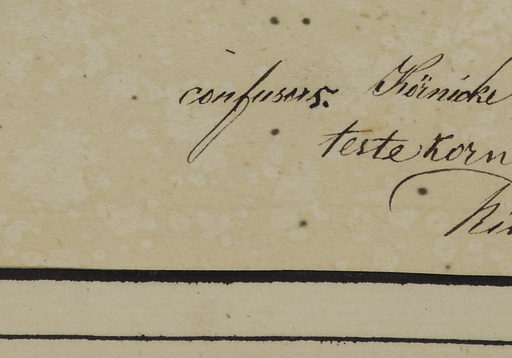 confusus. Körnicke
teste Korn